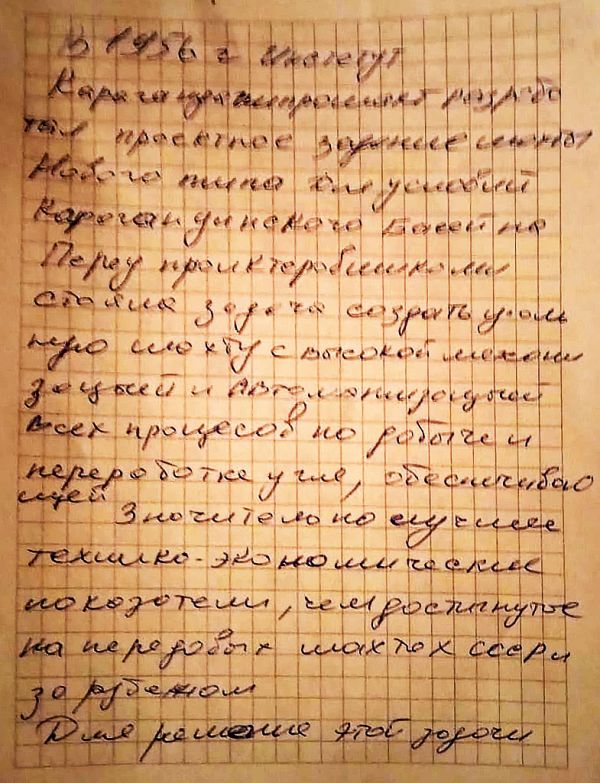 В 1956 г Институт
Карагандагипрошахт разрабо
тал проектное задание шахты
Нового типа для условий
Карагандинского Басейна
Перед проектеровшиками
стояла задача создать уголь
ную шахту с высокой механи
зацыей и Автоматизацыей
всех процесов по добыче и
переработке угля, обеспечиваю
щей
Значительно лучшие
технико-экономические
показатели, чем достигнутые
на передовых шахтах ссср и
за рубежом
Для решение этой задачи